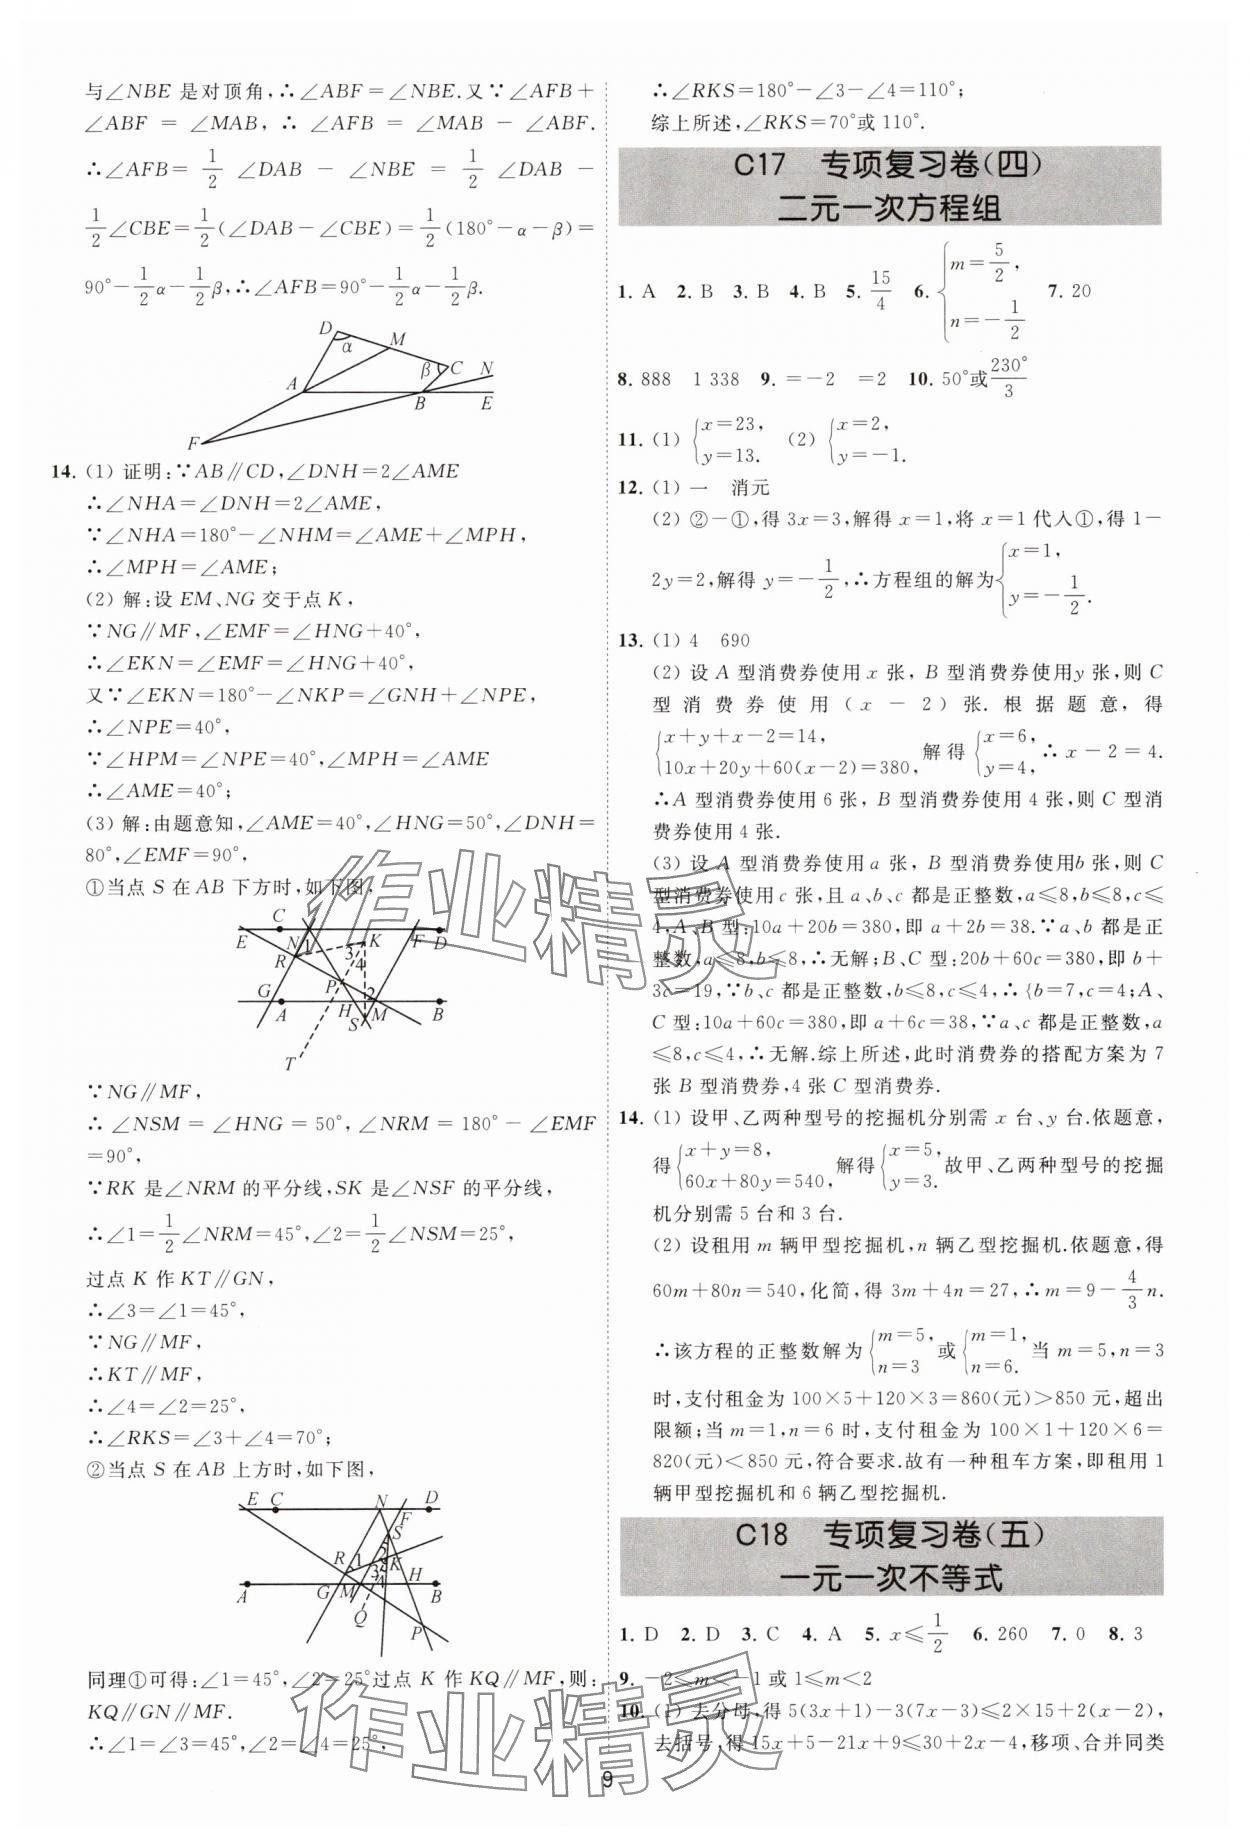 与∠NBE 是对顶角,∴∠ABF=∠NBE.又∵∠AFB+
∠ABF = ∠MAB, ∴ ∠AFB = ∠MAB − ∠ABF.
∴∠AFB= 1/2 ∠DAB − ∠NBE = 1/2 ∠DAB −
1/2∠CBE=1/2(∠DAB−∠CBE)=1/2(180°−α−β)=
90°−1/2α−1/2β,∴∠AFB=90°−1/2α−1/2β.
D
α
M
β
C
N
A
B
E
F
14. (1) 证明:∵AB∥CD,∠DNH=2∠AME
∴∠NHA=∠DNH=2∠AME,
∵∠NHA=180°−∠NHM=∠AME+∠MPH,
∴∠MPH=∠AME;
(2) 解:设 EM、NG 交于点 K,
∵NG∥MF,∠EMF=∠HNG+40°,
∴∠EKN=∠EMF=∠HNG+40°,
又∵∠EKN=180°−∠NKP=∠GNH+∠NPE,
∴∠NPE=40°,
∵∠HPM=∠NPE=40°,∠MPH=∠AME
∴∠AME=40°;
(3) 解:由题意知,∠AME=40°,∠HNG=50°,∠DNH=
80°,∠EMF=90°,
①当点 S 在 AB 下方时,如下图,
E C N 1 K F D
R 3 4
P
G A H 2 M B
S
T
∵NG∥MF,
∴ ∠NSM = ∠HNG = 50°, ∠NRM = 180° − ∠EMF
=90°,
∵RK 是∠NRM 的平分线,SK 是∠NSF 的平分线,
∴∠1=1/2∠NRM=45°,∠2=1/2∠NSM=25°,
过点 K 作 KT∥GN,
∴∠3=∠1=45°,
∵NG∥MF,
∴KT∥MF,
∴∠4=∠2=25°,
∴∠RKS=∠3+∠4=70°;
②当点 S 在 AB 上方时,如下图,
E C N D
F
S
R 1 2 K
3 4
A G M H B
Q
P
同理①可得:∠1=45°,∠2=25°过点 K 作 KQ∥MF,则:
KQ∥GN∥MF.
∴∠1=∠3=45°,∠2=∠4=25°,
∴∠RKS=180°−∠3−∠4=110°;
综上所述,∠RKS=70°或 110°.
C17 专项复习卷(四)
二元一次方程组
1. A 2. B 3. B 4. B 5. 15/4 6. {m=5/2, n=−1/2 7. 20
8. 888 1 338 9. =−2 =2 10. 50°或230°/3
11. (1) {x=23, y=13. (2) {x=2, y=−1.
12. (1) 一 消元
(2) ②−①,得 3x=3,解得 x=1,将 x=1 代入①,得 1−
2y=2,解得 y=−1/2,∴方程组的解为{x=1, y=−1/2.
13. (1) 4 690
(2) 设 A 型消费券使用 x 张, B 型消费券使用y 张,则 C
型消费券使用(x−2)张.根据题意,得
{x+y+x−2=14, 10x+20y+60(x−2)=380, 解得 {x=6, y=4, ∴x−2=4.
∴A 型消费券使用 6 张, B 型消费券使用 4 张,则 C 型消
费券使用 4 张.
(3) 设 A 型消费券使用 a 张, B 型消费券使用b 张,则 C
型消费券使用 c 张,且 a、b、c 都是正整数,a≤8,b≤8,c≤
4,A、B 型:10a+20b=380,即 a+2b=38.∵a、b 都是正
整数,a≤8,b≤8,∴无解;B、C 型:20b+60c=380,即 b+
3c=19,∵b、c 都是正整数,b≤8,c≤4,∴{b=7,c=4;A、
C 型:10a+60c=380,即 a+6c=38,∵a、c 都是正整数,a
≤8,c≤4,∴无解.综上所述,此时消费券的搭配方案为 7
张 B 型消费券,4 张 C 型消费券.
14. (1) 设甲、乙两种型号的挖掘机分别需 x 台、y 台.依题意,
得{x+y=8, 60x+80y=540, 解得{x=5, y=3. 故甲、乙两种型号的挖掘
机分别需 5 台和 3 台.
(2) 设租用 m 辆甲型挖掘机,n 辆乙型挖掘机.依题意,得
60m+80n=540,化简,得 3m+4n=27,∴m=9−4/3n.
∴该方程的正整数解为{m=5, n=3 或{m=1, n=6. 当 m=5,n=3
时,支付租金为 100×5+120×3=860(元)>850 元,超出
限额;当 m=1,n=6 时,支付租金为 100×1+120×6=
820(元)<850 元,符合要求.故有一种租车方案,即租用 1
辆甲型挖掘机和 6 辆乙型挖掘机.
C18 专项复习卷(五)
一元一次不等式
1. D 2. D 3. C 4. A 5. x≤1/2 6. 260 7. 0 8. 3
9. −2≤m<−1 或 1≤m<2
10. (1) 去分母,得 5(3x+1)−3(7x−3)≤2×15+2(x−2),
去括号,得 15x+5−21x+9≤30+2x−4,移项、合并同类
9
作业精灵
作业精灵